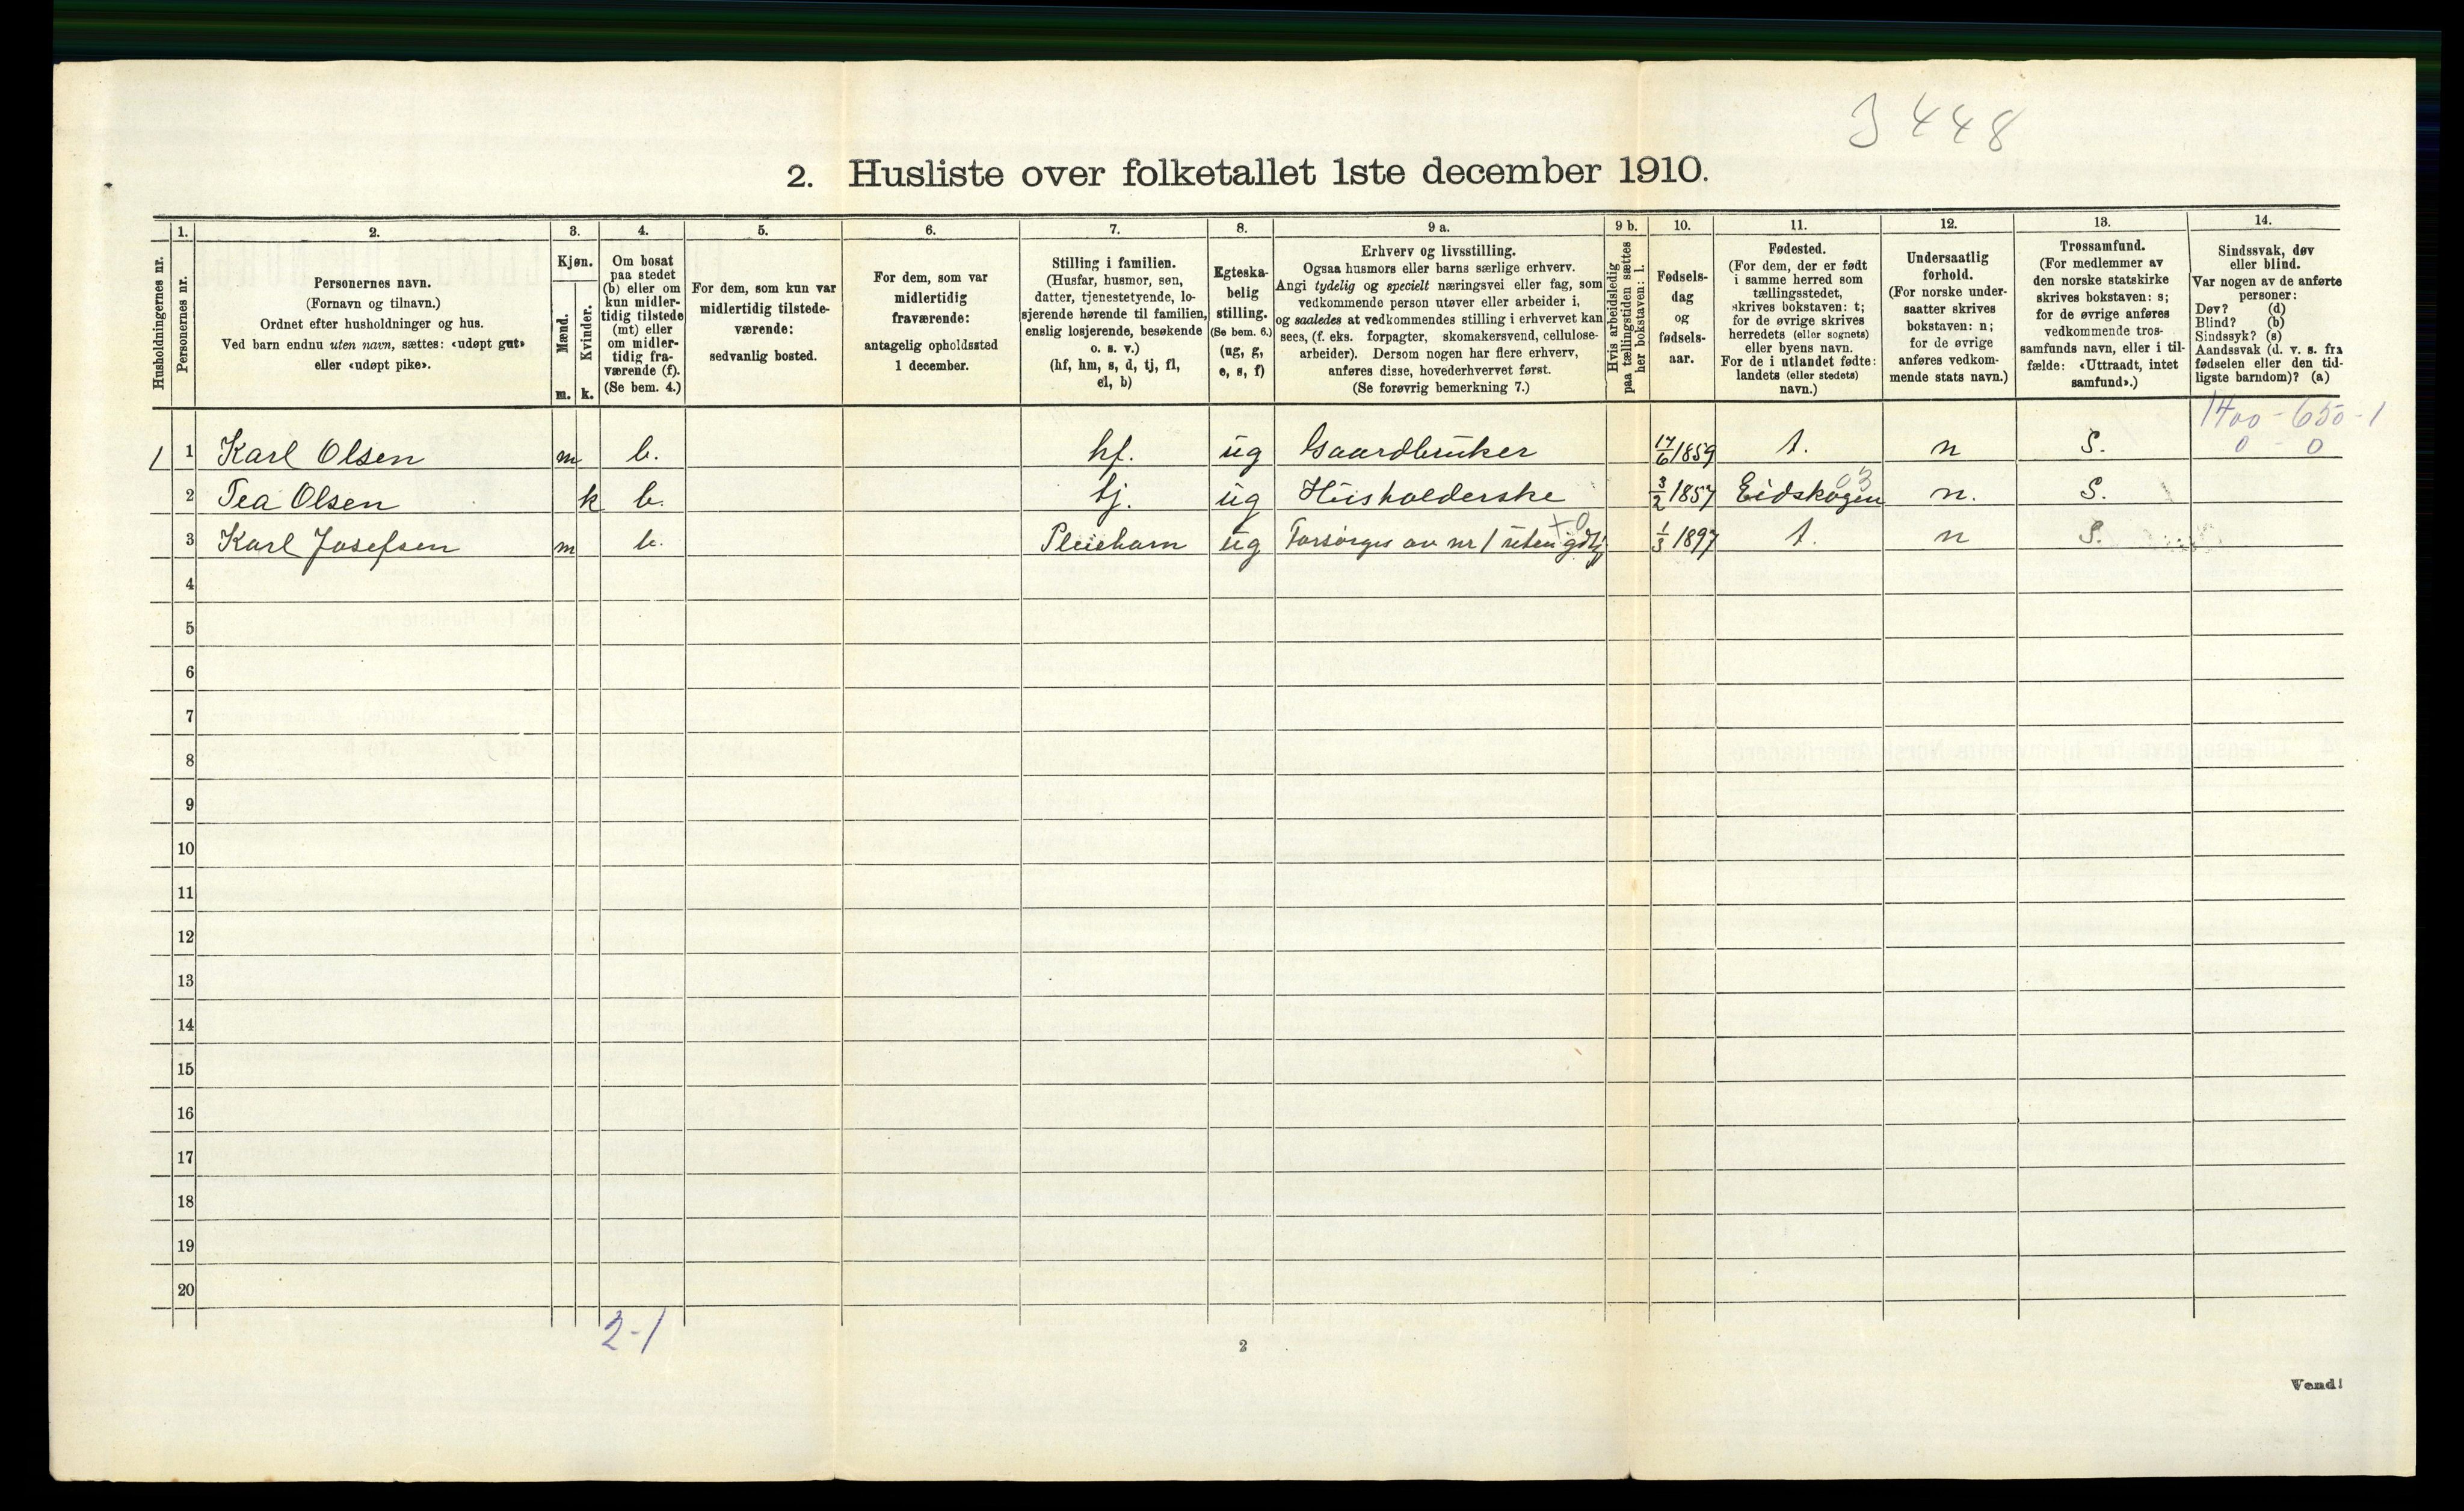 3 448
2. Husliste over folketallet 1ste december 1910.
Husholdningernes nr.
1.
Personernes nr.
2.
Personernes navn.
(Fornavn og tilnavn.)
Ordnet efter husholdninger og hus.
Ved barn endnu uten navn, sættes: «udøpt gut»
eller «udøpt pike».
3.
Kjøn.
Mænd.
Kvinder.
m. k.
4.
Om bosat
paa stedet
(b) eller om
kun midler-
tidig tilstede
(mt) eller
om midler-
tidig fra-
værende (f).
(Se bem. 4.)
5.
For dem, som kun var
midlertidig tilstede-
værende:
sedvanlig bosted.
6.
For dem, som var
midlertidig
fraværende:
antagelig opholdssted
1 december.
7.
Stilling i familien.
(Husfar, husmor, søn,
datter, tjenestetyende, lo-
sjerende hørende til familien,
enslig losjerende, besøkende
o. s. v.)
(hf, hm, s, d, tj, fl,
el, b)
8.
Egteska-
belig
stilling.
(Se bem. 6.)
(ug, g,
e, s, f)
9 a.
Erhverv og livsstilling.
Ogsaa husmors eller barns særlige erhverv.
Angi tydelig og specielt næringsvei eller fag, som
vedkommende person utøver eller arbeider i,
og saaledes at vedkommendes stilling i erhvervet kan
sees, (f. eks. forpagter, skomakersvend, cellulose-
arbeider). Dersom nogen har flere erhverv,
anføres disse, hovederhvervet først.
(Se forøvrig bemerkning 7.)
9 b.
Hvis arbeidsledig
paa tællingstiden sættes
her bokstaven: l.
10.
Fødsels-
dag
og
fødsels-
aar.
11.
Fødested.
(For dem, der er født
i samme herred som
tællingsstedet,
skrives bokstaven: t;
for de øvrige skrives
herredets (eller sognets)
eller byens navn.
For de i utlandet fødte:
landets (eller stedets)
navn.)
12.
Undersaatlig
forhold.
(For norske under-
saatter skrives
bokstaven: n;
for de øvrige
anføres vedkom-
mende stats navn.)
13.
Trossamfund.
(For medlemmer av
den norske statskirke
skrives bokstaven: s;
for de øvrige anføres
vedkommende tros-
samfunds navn, eller i til-
fælde: «Uttraadt, intet
samfund».)
14.
Sindssvak, døv
eller blind.
Var nogen av de anførte
personer:
Døv? (d)
Blind? (b)
Sindssyk? (s)
Aandssvak (d. v. s. fra
fødselen eller den tid-
ligste barndom)? (a)
1400 - 650 - 1
1 1 Karl Olsen m b. hf. ug Gaardbruker 17/6 1859 t. n S. 0 - 0
03
2 Tea Olsen k b. tj. ug Husholderske 3/2 1857 Eidskogen n. S.
+0
3 Karl Josefsen m b. Pleiebarn ug Forsørges av nr 1 uten gdtj 1/3 1897 t. n S.
4
5
6
7
8
9
10
11
12
13
14
15
16
17
18
19
20
2-1
2
Vend!